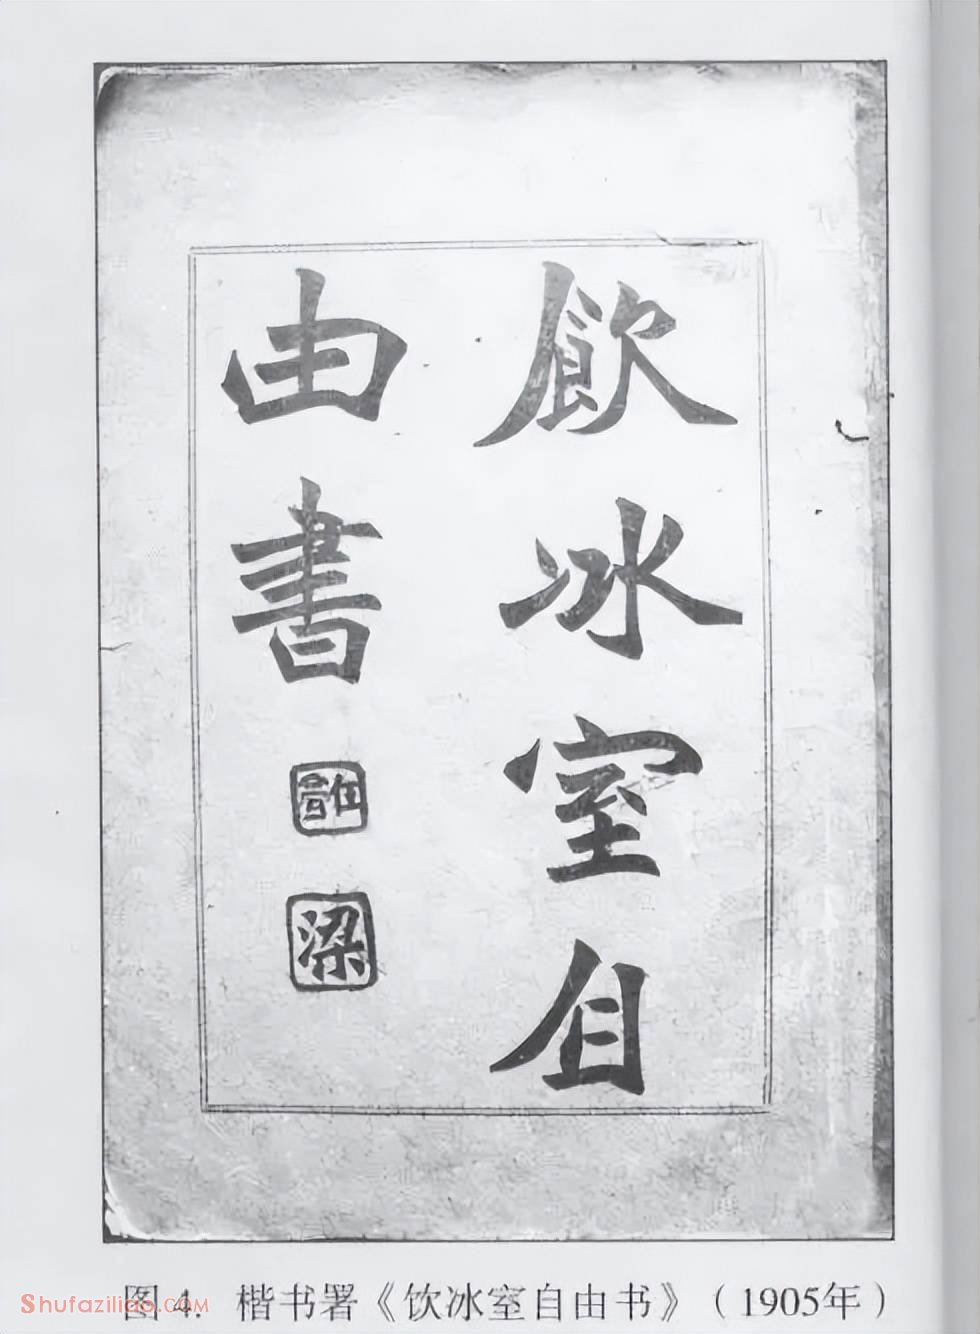 飲冰室自
由書
任
梁
图 4. 楷书署《饮冰室自由书》（1905年）
Shufaziliao.COM